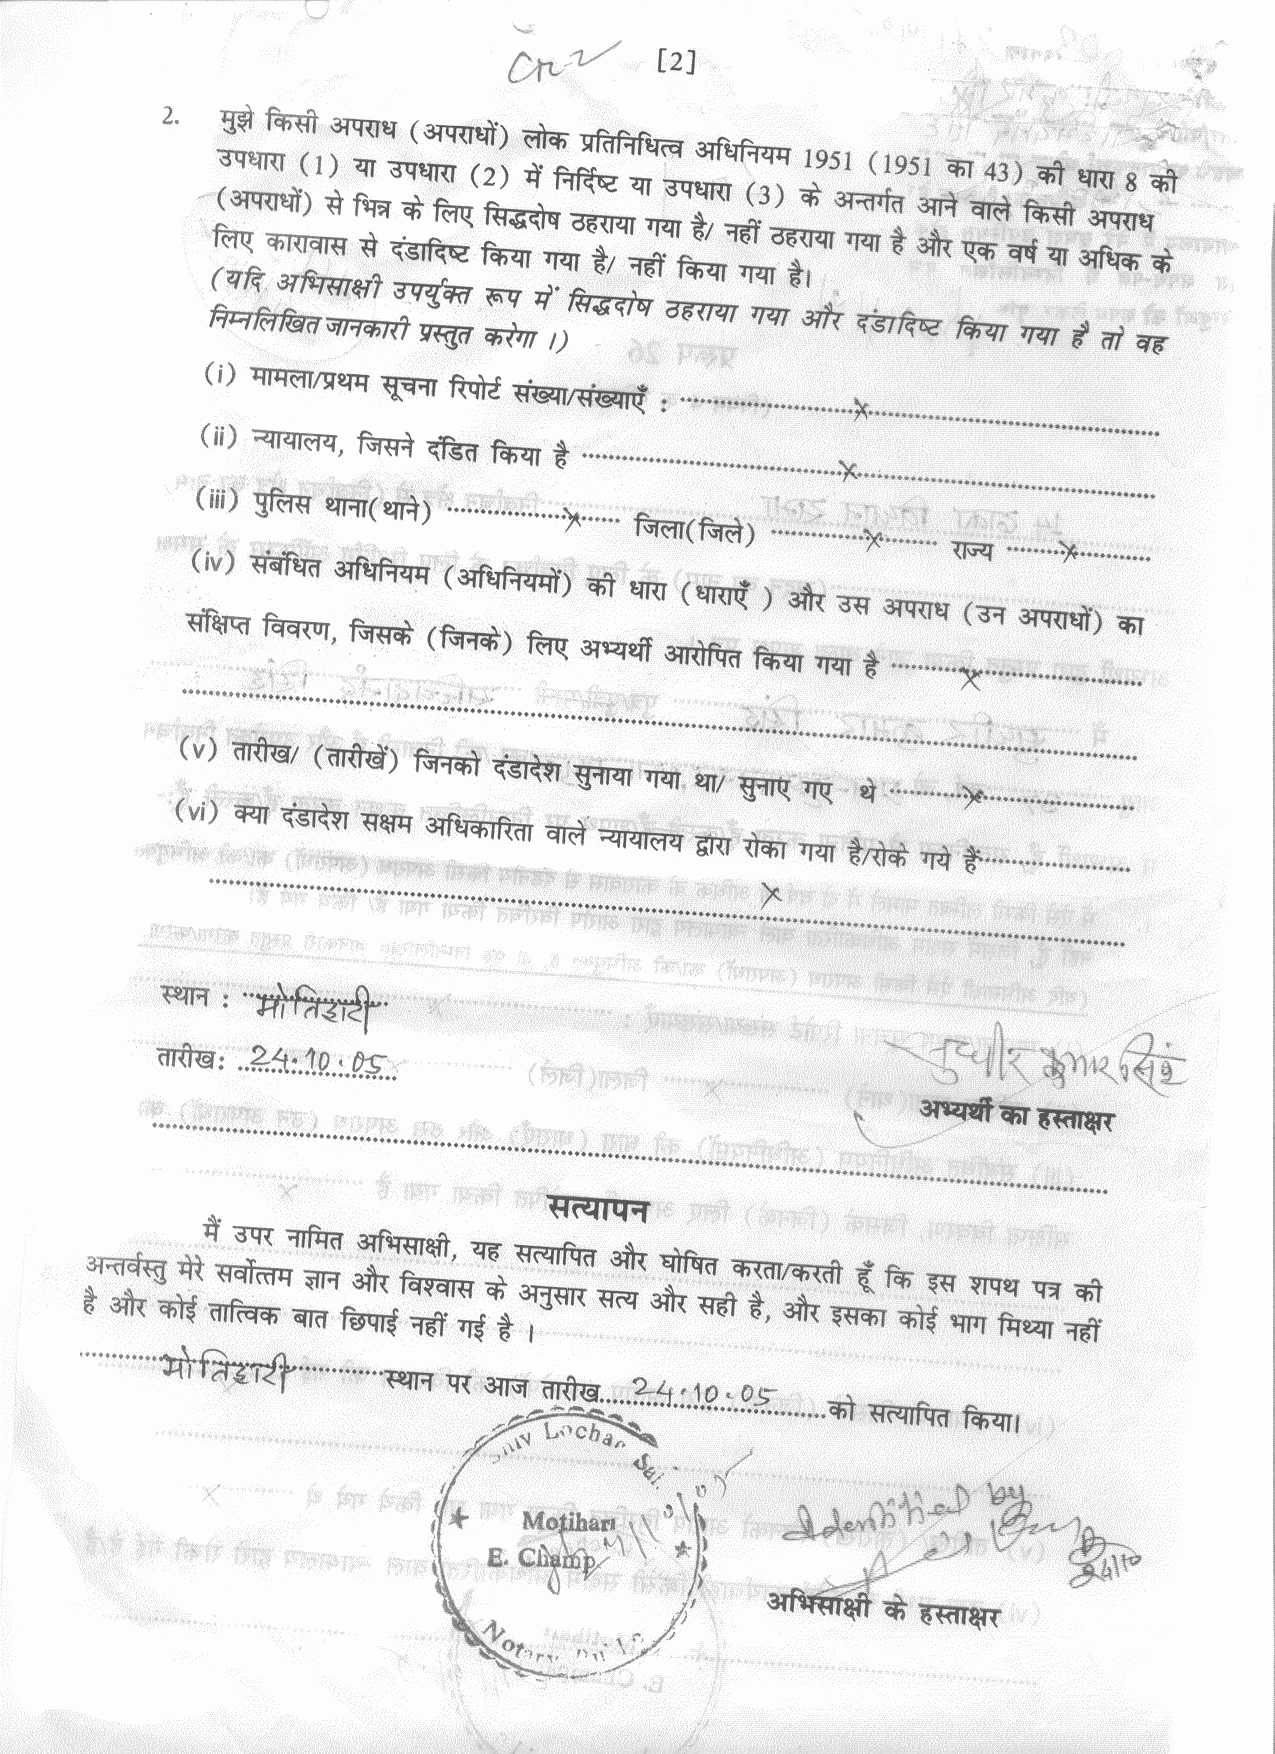 [2]
2. मुझे किसी अपराध (अपराधों) लोक प्रतिनिधित्व अधिनियम 1951 (1951 का 43) की धारा 8 की
उपधारा (1) या उपधारा (2) में निर्दिष्ट या उपधारा (3) के अन्तर्गत आने वाले किसी अपराध
(अपराधों) से भिन्न के लिए सिद्धदोष ठहराया गया है/ नहीं ठहराया गया है और एक वर्ष या अधिक के
लिए कारावास से दंडादिष्ट किया गया है/ नहीं किया गया है।
(यदि अभिसाक्षी उपर्युक्त रूप में सिद्धदोष ठहराया गया और दंडादिष्ट किया गया है तो वह
निम्नलिखित जानकारी प्रस्तुत करेगा ।)
(i) मामला/प्रथम सूचना रिपोर्ट संख्या/संख्याएँ : x
(ii) न्यायालय, जिसने दंडित किया है x
(iii) पुलिस थाना(थाने) x जिला(जिले) x राज्य x
(iv) संबंधित अधिनियम (अधिनियमों) की धारा (धाराएँ ) और उस अपराध (उन अपराधों) का
संक्षिप्त विवरण, जिसके (जिनके) लिए अभ्यर्थी आरोपित किया गया है x
(v) तारीख/ (तारीखें) जिनको दंडादेश सुनाया गया था/ सुनाए गए थे x
(vi) क्या दंडादेश सक्षम अधिकारिता वाले न्यायालय द्वारा रोका गया है/रोके गये हैं
x
स्थान : मोतिहारी
तारीख: 24.10.05
सुधीर कुमार सिंह
अभ्यर्थी का हस्ताक्षर
सत्यापन
मैं उपर नामित अभिसाक्षी, यह सत्यापित और घोषित करता/करती हूँ कि इस शपथ पत्र की
अन्तर्वस्तु मेरे सर्वोत्तम ज्ञान और विश्वास के अनुसार सत्य और सही है, और इसका कोई भाग मिथ्या नहीं
है और कोई तात्विक बात छिपाई नहीं गई है ।
मोतिहारी स्थान पर आज तारीख 24.10.05 को सत्यापित किया।
Lochan
Motihari
E. Champ
Notary
Identified by
24/10
अभिसाक्षी के हस्ताक्षर